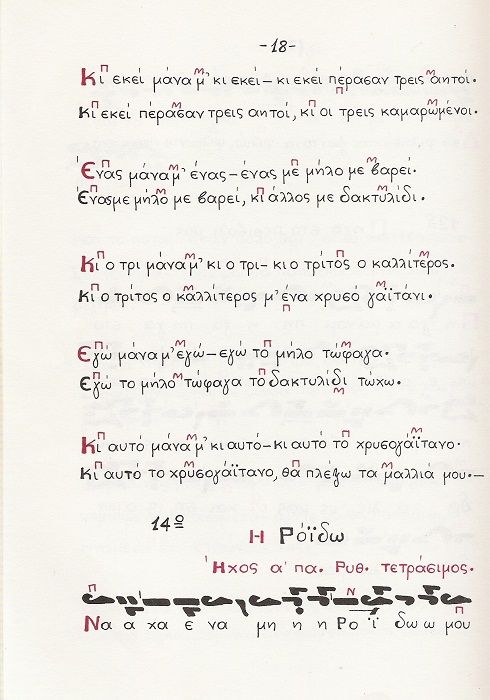 -18-
Κι εκεί μάνα μ' κι εκεί – κι εκεί πέρασαν τρεις αητοί.
Κι εκεί πέρασαν τρεις αητοί, κι οι τρεις καμαρωμένοι.
Ένας μάνα μ' ένας – ένας με μήλο με βαρεί.
Ένας με μήλο με βαρεί, κι άλλος με δακτυλίδι.
Κι ο τρι μάνα μ' κι ο τρι – κι ο τρίτος ο καλλίτερος.
Κι ο τρίτος ο καλλίτερος μ' ένα χρυσό γαϊτάνι.
Εγώ μάνα μ' εγώ – εγώ το μήλο τώφαγα.
Εγώ το μήλο τώφαγα το δακτυλίδι τώχω.
Κι αυτό μάνα μ' κι αυτό – κι αυτό το χρυσογάϊτανο.
Κι αυτό το χρυσογάϊτανο, θα πλέξω τα μαλλιά μου.—
14ο Η Ρόϊδω
Ήχος α' πα. Ρυθ. τετράσιμος.
Να α χα ε να μη η η Ρο ϊ δω ω μου